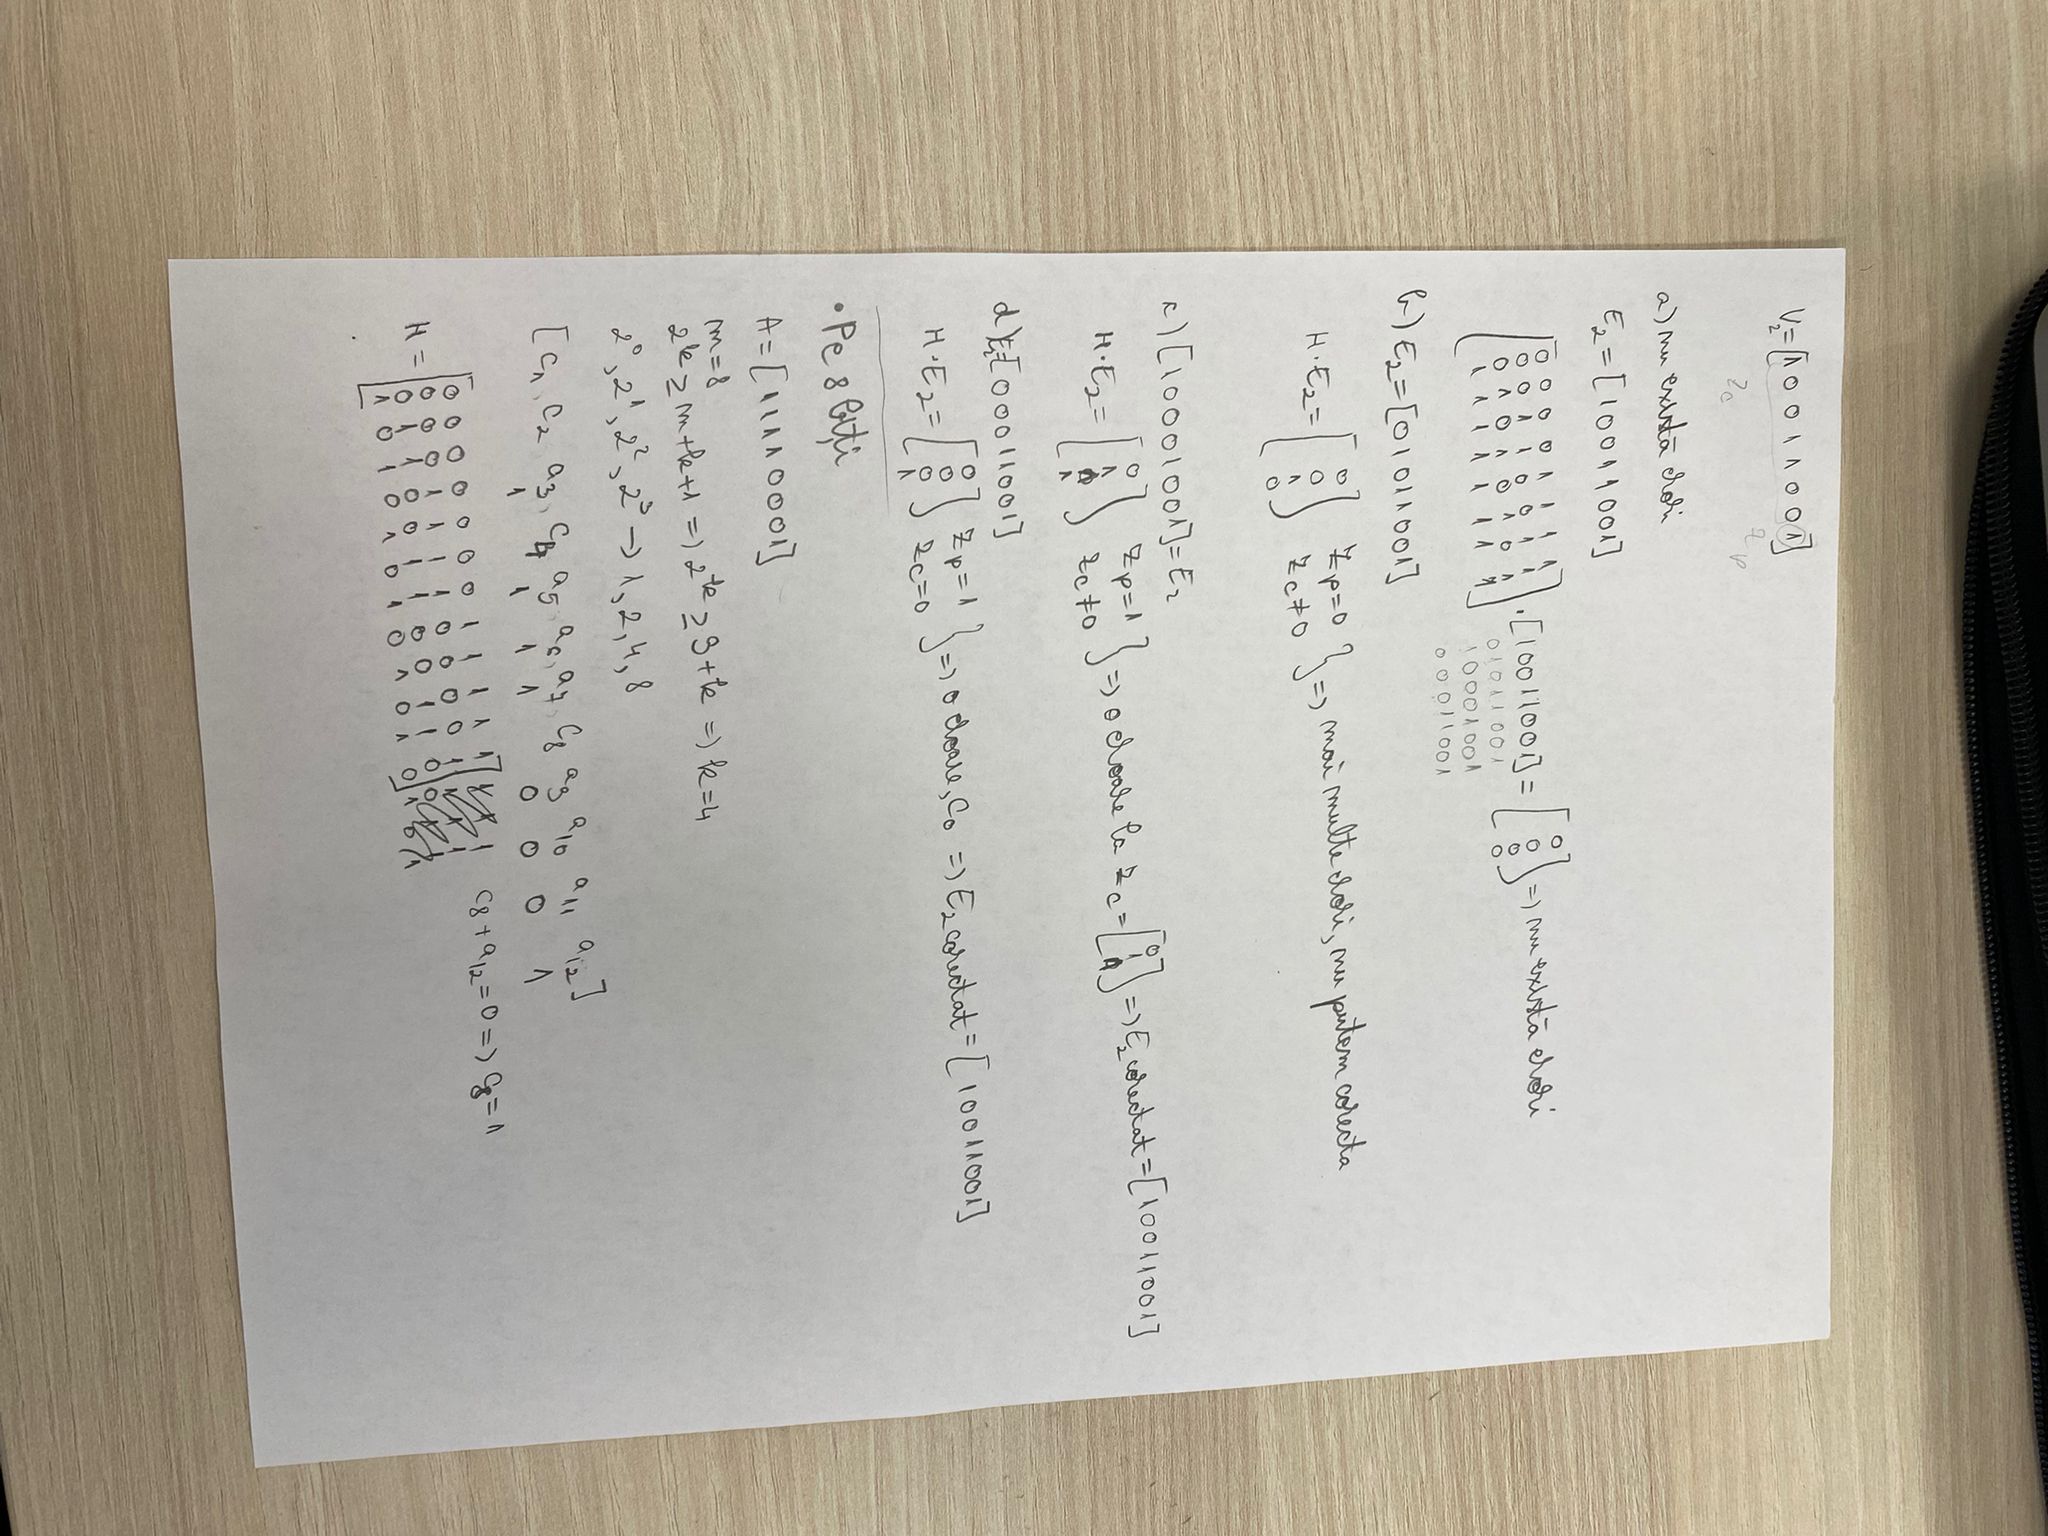 V₂=[1 0 0 1 1 0 0 1]
Z_c Z_p
a) nu există erori
E₂=[10011001]
[0 0 0 0 1 1 1 1
0 0 1 1 0 0 1 1
0 1 0 1 0 1 0 1
1 1 1 1 1 1 1 1] · [10011001] = [0 0 0 0] => nu există erori
01011001
10001001
00011001
b) E₂=[01011001]
H·E₂= [0 0 1 0] Z_p=0 Z_c≠0 } => mai multe erori, nu putem corecta
c) [10001001]=E₂
H·E₂= [0 1 1 1] Z_p=1 Z_c≠0 } => o eroare la Z_c= [0 1 1] => E₂ corectat=[10011001]
d) E₂=[00011001]
H·E₂= [0 0 0 1] Z_p=1 Z_c=0 } => o eroare, C₀ => E₂ corectat=[10011001]
• Pe 8 biți
A=[11110001]
m=8
2^k ≥ m+k+1 => 2^k ≥ 9+k => k=4
2⁰, 2¹, 2², 2³ -> 1, 2, 4, 8
[C₁, C₂ a₃, C₄ a₅ a₆, a₇, C₈ a₉ a₁₀ a₁₁ a₁₂]
1 1 1 1 0 0 0 1
H = [0 0 0 0 0 0 0 1 1 1 1 1] C₈+a₁₂=0 => C₈=1
0 0 0 1 1 1 1 0 0 0 0 1
0 1 1 0 0 1 1 0 0 1 1 0
1 0 1 0 1 0 1 0 1 0 1 0